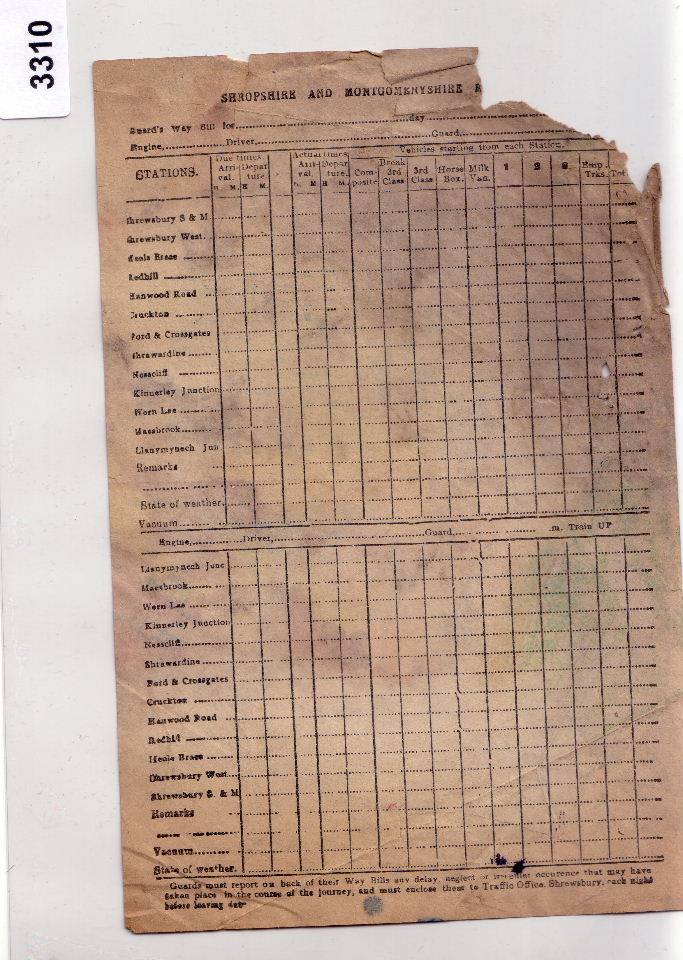 3310
SHROPSHIRE AND MONTGOMERYSHIRE R
Guard's Way Bill for day
Engine, Driver, Guard,
Vehicles starting from each Station.
STATIONS. Due times. Actual times
Arri- Depar Arri- Depar Com- Break 3rd Horse Milk 1 2 Emp. Tot
val. ture. val. ture. posite 3rd Class Box. Van. Trks.
Class
H. M. H M. H. M H M.
Shrewsbury S & M
Shrewsbury West.
Meole Brace
Redhill
Hanwood Road
Cruckton
Ford & Crossgates
Shrawardine
Nesscliff
Kinnerley Junction
Wern Las
Maesbrook
Llanymynech Jun
Remarks
State of weather.
Vacuum
Engine, Driver, Guard, m. Train UP
Llanymynech Junc
Maesbrook
Wern Las
Kinnerley Junction
Nesscliff
Shrawardine
Ford & Crossgates
Cruckton
Hanwood Road
Redhill
Meole Brace
Shrewsbury West.
Shrewsbury S. & M
Remarks
Vacuum
State of weather.
Guards must report on back of their Way Bills any delay, neglect or irregular occurence that may have
taken place in the course of the journey, and must enclose them to Traffic Office, Shrewsbury, each night
before leaving